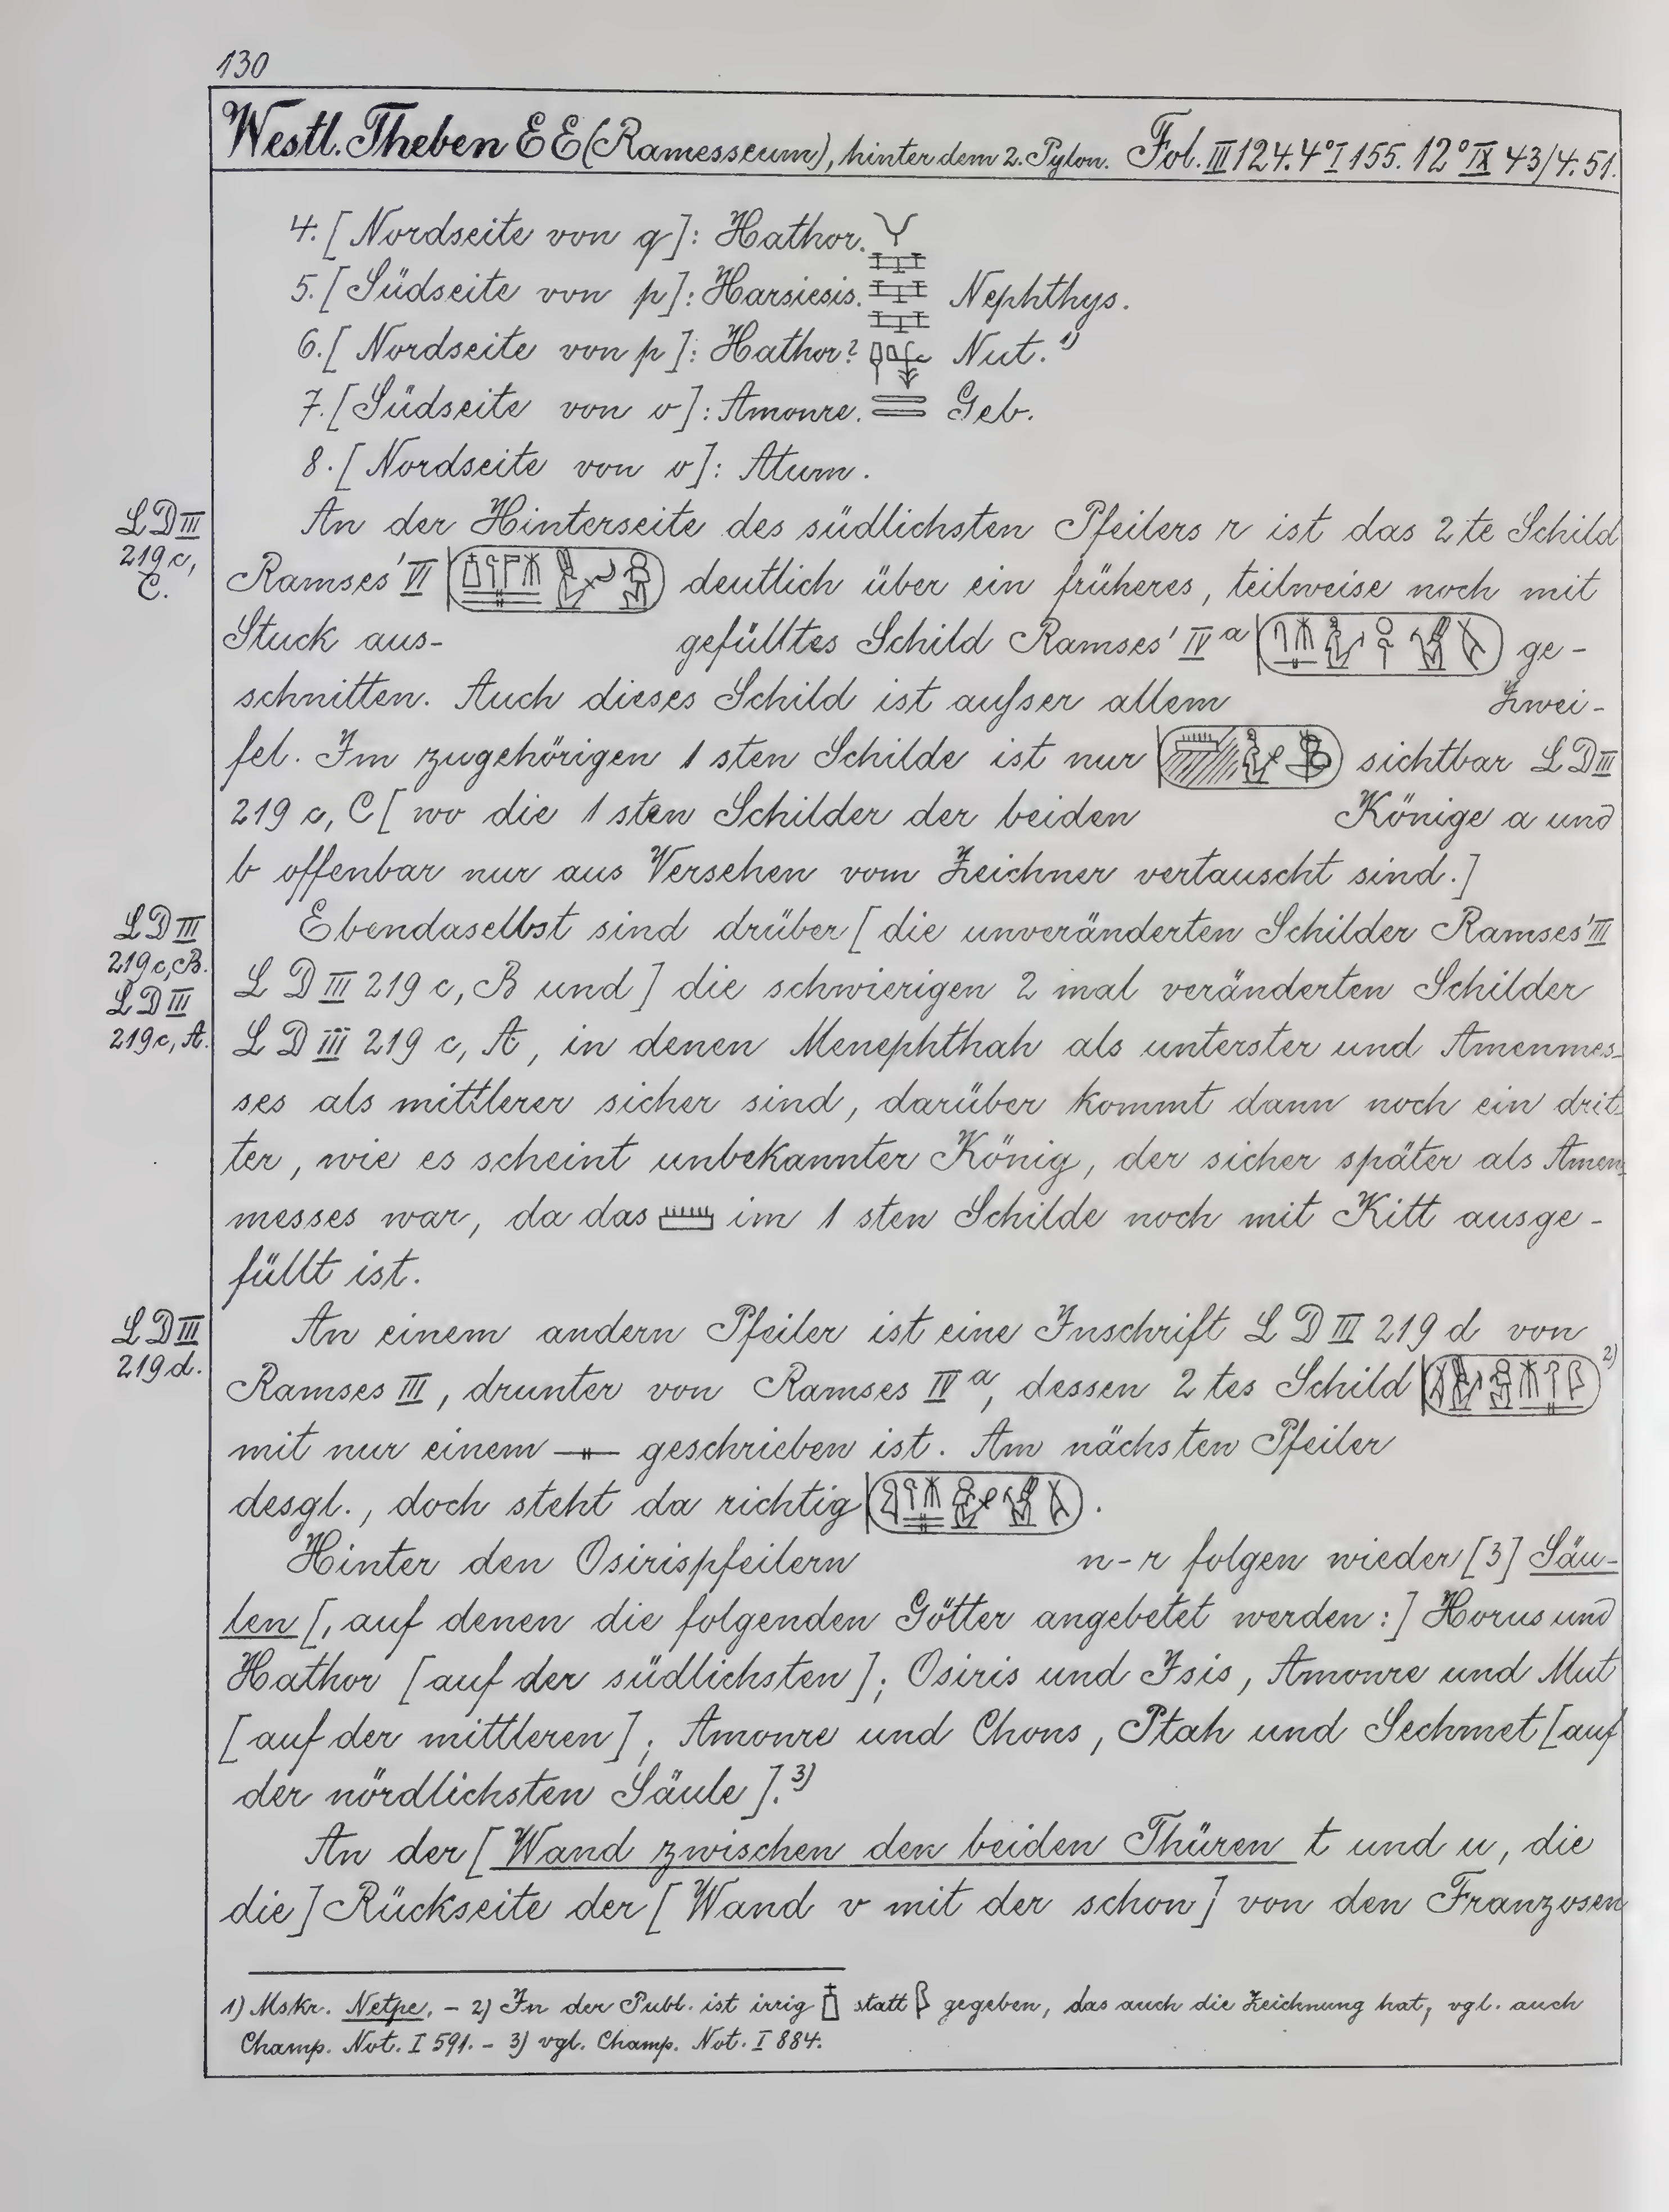 130
Westl. Theben EE (Ramesseum), hinter dem 2. Pylon. Fol. III 124. 4° I 155. 12° IX 43/4. 51.
4. [Nordseite von q]: Hathor.
5. [Südseite von p]: Harsiesis. Nephthys.
6. [Nordseite von p]: Hathor? Nut. 1)
7. [Südseite von o]: Amonre. Geb.
8. [Nordseite von o]: Atum.
LD III
219 c,
C.
An der Hinterseite des südlichsten Pfeilers r ist das 2te Schild
Ramses' VI deutlich über ein früheres, teilweise noch mit
Stuck aus- gefülltes Schild Ramses' IV a ge-
schnitten. Auch dieses Schild ist aufser allem Zwei-
fel. Im zugehörigen 1sten Schilde ist nur sichtbar LD III
219 c, C [wo die 1sten Schilder der beiden Könige a und
b offenbar nur aus Versehen vom Zeichner vertauscht sind.]
LD III
219 c, B.
LD III
219 c, A.
Ebendaselbst sind drüber [die unveränderten Schilder Ramses' III
LD III 219 c, B und] die schwierigen 2 mal veränderten Schilder
LD III 219 c, A, in denen Menephthah als unterster und Amenmes-
ses als mittlerer sicher sind, darüber kommt dann noch ein drit-
ter, wie es scheint unbekannter König, der sicher später als Amen-
messes war, da das im 1sten Schilde noch mit Kitt ausge-
füllt ist.
LD III
219 d.
An einem andern Pfeiler ist eine Inschrift LD III 219 d von
Ramses III, drunter von Ramses IV a, dessen 2tes Schild 2)
mit nur einem geschrieben ist. Am nächsten Pfeiler
desgl., doch steht da richtig .
Hinter den Osirispfeilern n-r folgen wieder [3] Säu-
len [, auf denen die folgenden Götter angebetet werden:] Horus und
Hathor [auf der südlichsten]; Osiris und Isis, Amonre und Mut
[auf der mittleren]; Amonre und Chons, Ptah und Sechmet [auf
der nördlichsten Säule]. 3)
An der [Wand zwischen den beiden Thüren t und u, die
die] Rückseite der [Wand v mit der schon] von den Franzosen
1) Mskr. Netpe. – 2) In der Publ. ist irrig statt gegeben, das auch die Zeichnung hat, vgl. auch
Champ. Not. I 591. – 3) vgl. Champ. Not. I 884.